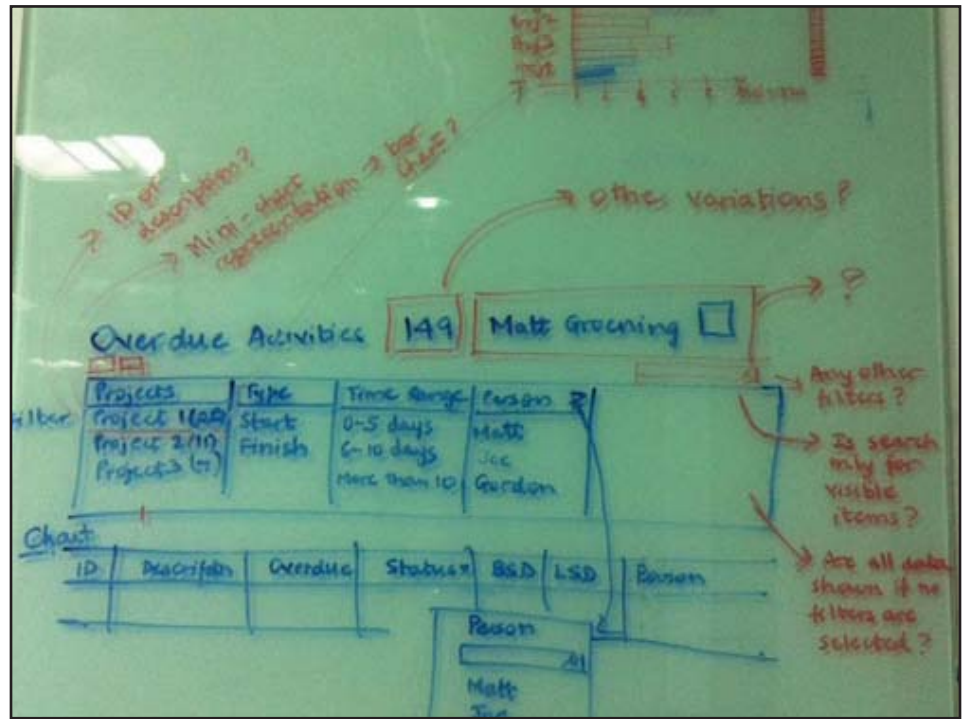 Proj 2
Proj 3
→ ID or
description?
→ Mini-chart
representation → bar
chart?
→ other variations?
→ ?
Overdue Activities 149 Matt Groening
→ Any other
filters?
→ Is search
only for
visible
items?
→ Are all data
shown if no
filters are
selected?
Filter
Projects Type Time Range Person
Project 1 Start 0-5 days Matt
Project 2 Finish 6-10 days Joe
Project 3 More than 10 Gordon
Chart
ID Overdue Status BSD LSD Person
Person
Matt
Joe